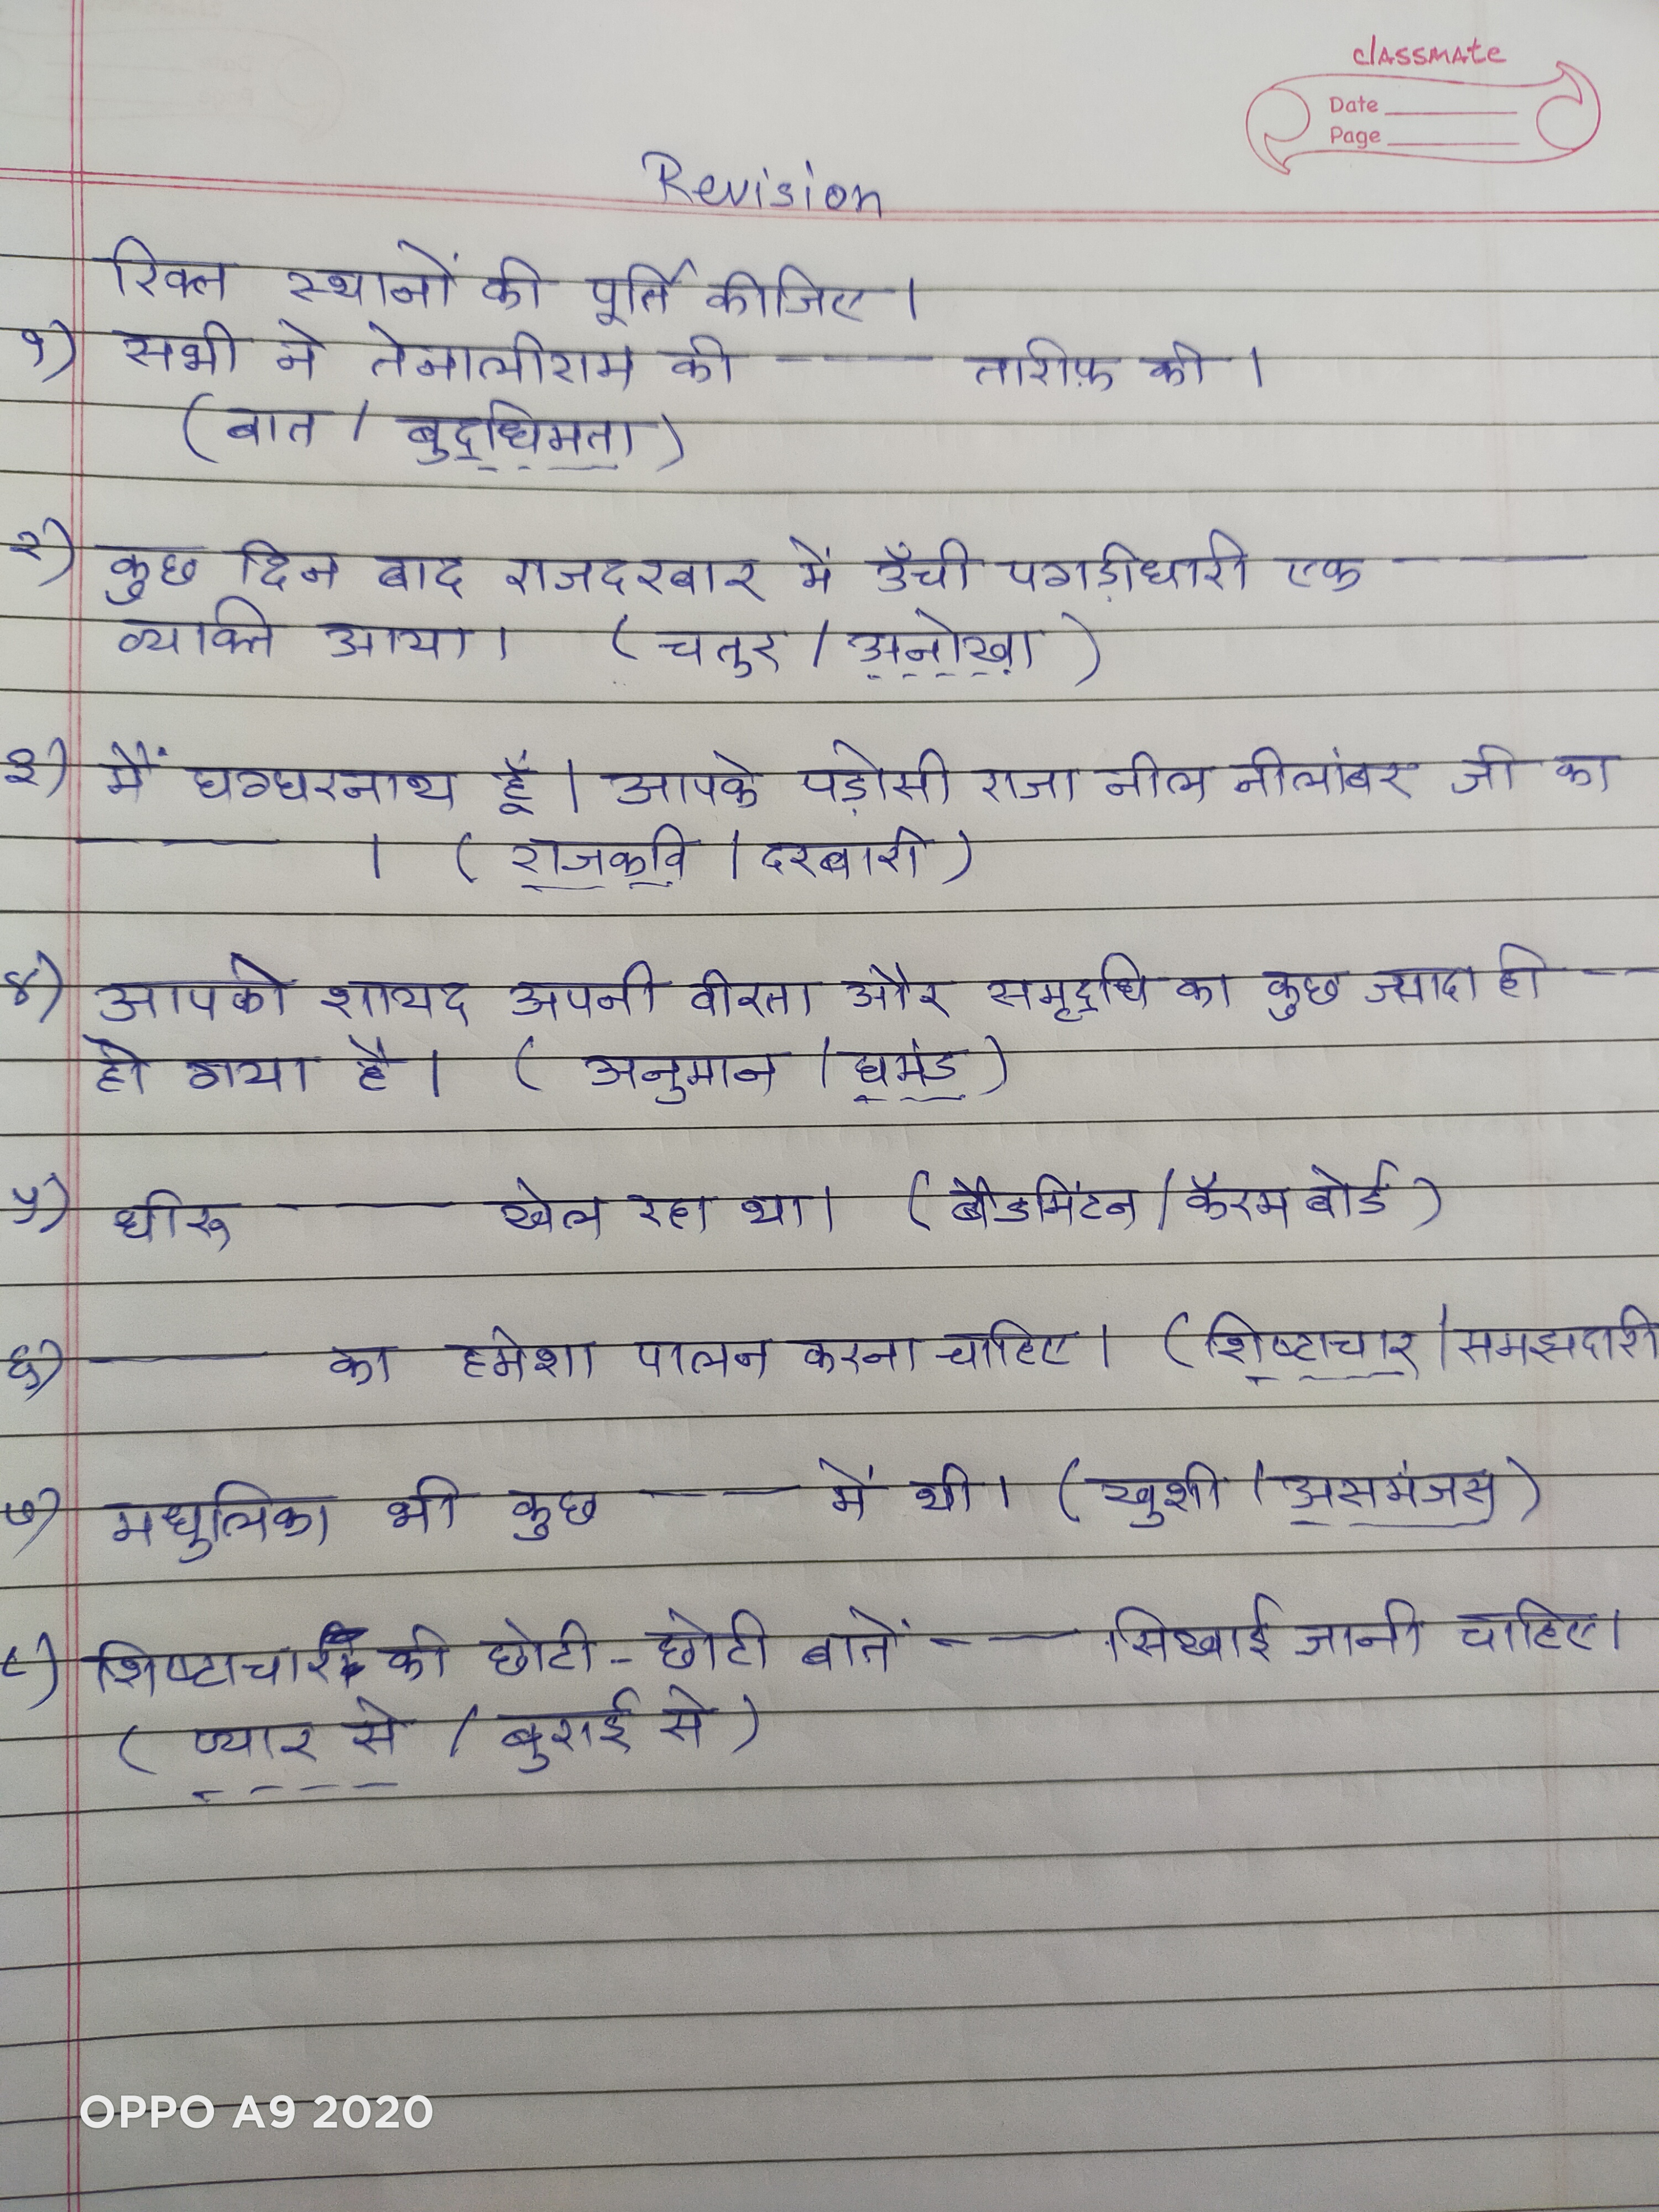 classmate
Date
Page
Revision
रिक्त स्थानों की पूर्ति कीजिए।
१) सभी ने तेनालीराम की ---- तारीफ़ की।
(बात / बुद्धिमता)
२) कुछ दिन बाद राजदरबार में उँची पगड़ीधारी एक ----
व्यक्ति आया। (चतुर / अनोखा)
३) मैं घग्घरनाथ हूँ। आपके पड़ोसी राजा नील नीलांबर जी का
---- । (राजकवि / दरबारी)
४) आपको शायद अपनी वीरता और समृद्धि का कुछ ज्यादा ही --
हो गया है। (अनुमान / घमंड)
५) धीरू ---- खेल रहा था। (बैडमिंटन / कॅरम बोर्ड)
६) ---- का हमेशा पालन करना चाहिए। (शिष्टाचार / समझदारी
७) मधुलिका भी कुछ ---- में थी। (खुशी / असमंजस)
८) शिष्टाचार की छोटी - छोटी बातें ---- सिखाई जानी चाहिए।
(प्यार से / बुराई से)
OPPO A9 2020